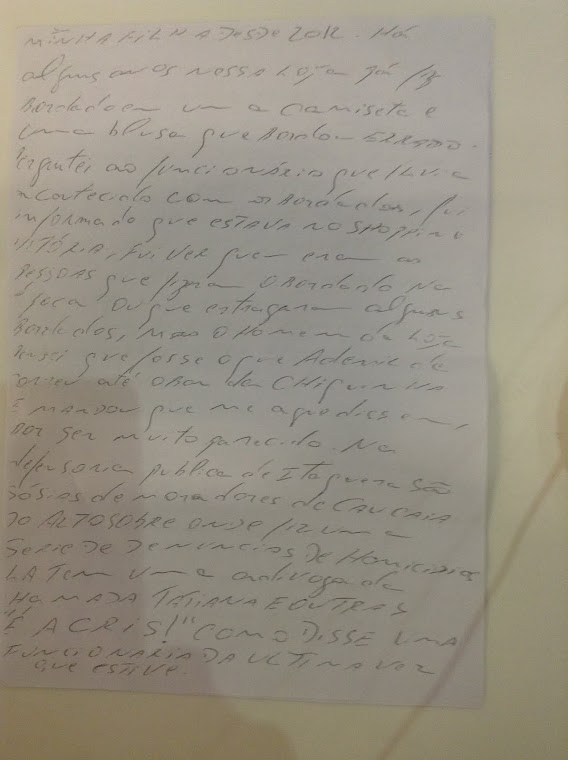 MINHA FILHA DESDE 2012. Há
alguns anos nossa LOJA já fiz
Bordado em uma camiseta e
uma blusa que Bordou ERRADO.
Perguntei ao funcionário que havia
acontecido com os Bordados, fui
informado que ESTAVA NO SHOPPING
VITÓRIA, FUI VER quem eram as
PESSOAS que fizeram O BORDADO Na
época ou que estragaram alguns
Bordados, O Homem da LOJA
Pensei que fosse o que Ademir de
correu até o Bar da CHIQUINHA
E MANDOU que me agredissem,
POR SER muito parecido. Na
defensoria publica de Itaquera SÃO
SÓSIAS de MORADORES de CAUCAIA
DO ALTO SOBRE ONDE fiz uma
SERIE DE DENUNCIAS DE HOMICIDIOS
LA TEM uma advogada
CHAMADA TATIANA E OUTRAS
"É A CRIS!" COMO DISSE UMA
FUNCIONARIA DA ULTIMA VEZ
que ESTIVE.